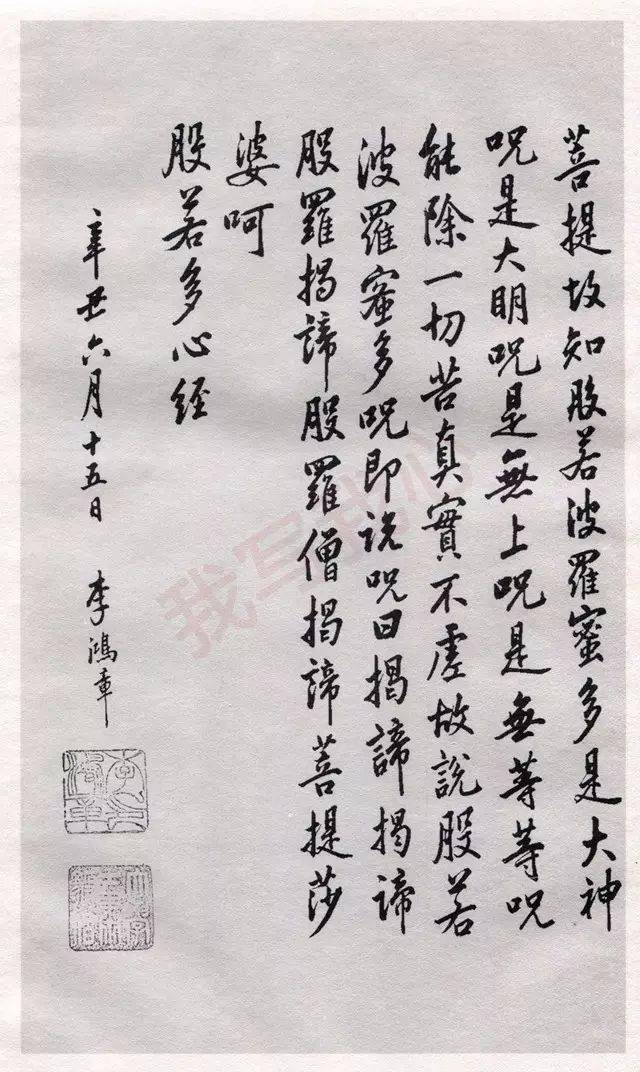 菩提故知股若波羅蜜多是大神
呪是大明呪是無上呪是無等等呪
能除一切苦真實不虛故說股若
波羅蜜多呪即说呪曰揭諦揭諦
股羅揭諦股羅僧揭諦菩提莎
婆呵
股若多心経
辛丑六月十五日 李鴻章
我写我心